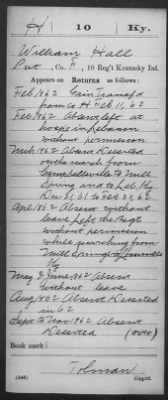 H 10 Ky.
William Hall
Pvt, Co. F, 10 Reg't Kentucky Inf.
Appears on Returns as follows:
Feb 1862 Gain Transf'd
from Co H Feb 11, 62
Feb 1862 Absent left at
hosp in Lebanon
without permission
Mch 1862 Absent Deserted
on the march from
Campbellsville to Mill
Spring and to Leb. Ky
Dec 31, 61 to Feb 23, 62
Apl 1862 Absent without
leave Left the Regt
without permission
while marching from
Mill Springs to
May & June 1862 Absent
without leave
Aug 1862 Absent Deserted
in 62
Sept to Nov 1862 Absent
Deserted (over)
Book mark:
(546) Tolman
Copyist.